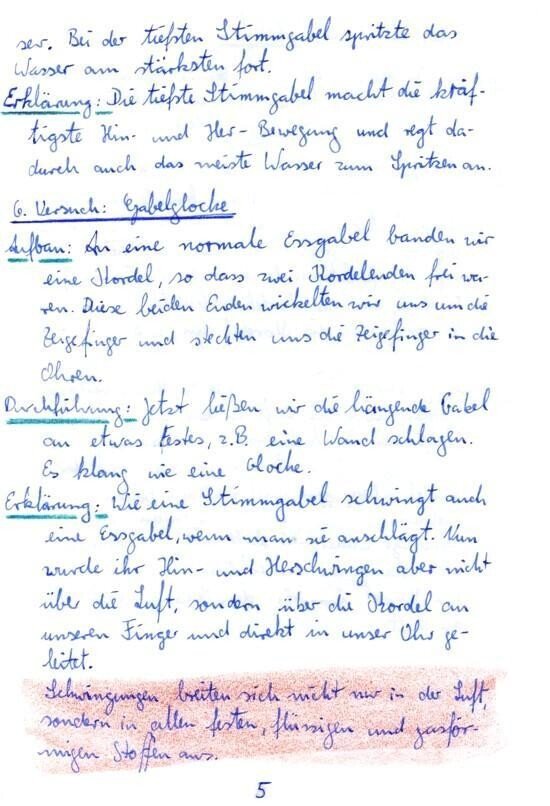 ser. Bei der tiefsten Stimmgabel spritzte das
Wasser am stärksten fort.
Erklärung: Die tiefste Stimmgabel macht die kräf-
tigste Hin- und Her-Bewegung und regt da-
durch auch das meiste Wasser zum Spritzen an.
6. Versuch: Gabelglocke
Aufbau: An eine normale Essgabel banden wir
eine Kordel, so dass zwei Kordelenden frei wa-
ren. Diese beiden Enden wickelten wir uns um die
Zeigefinger und steckten uns die Zeigefinger in die
Ohren.
Durchführung: Jetzt ließen wir die hängende Gabel
an etwas Festes, z.B. eine Wand schlagen.
Es klang wie eine Glocke.
Erklärung: Wie eine Stimmgabel schwingt auch
eine Essgabel, wenn man sie anschlägt. Nun
wurde ihr Hin- und Herschwingen aber nicht
über die Luft, sondern über die Kordel an
unseren Finger und direkt in unser Ohr ge-
leitet.
Schwingungen breiten sich nicht nur in der Luft,
sondern in allen festen, flüssigen und gasför-
migen Stoffen aus.
5